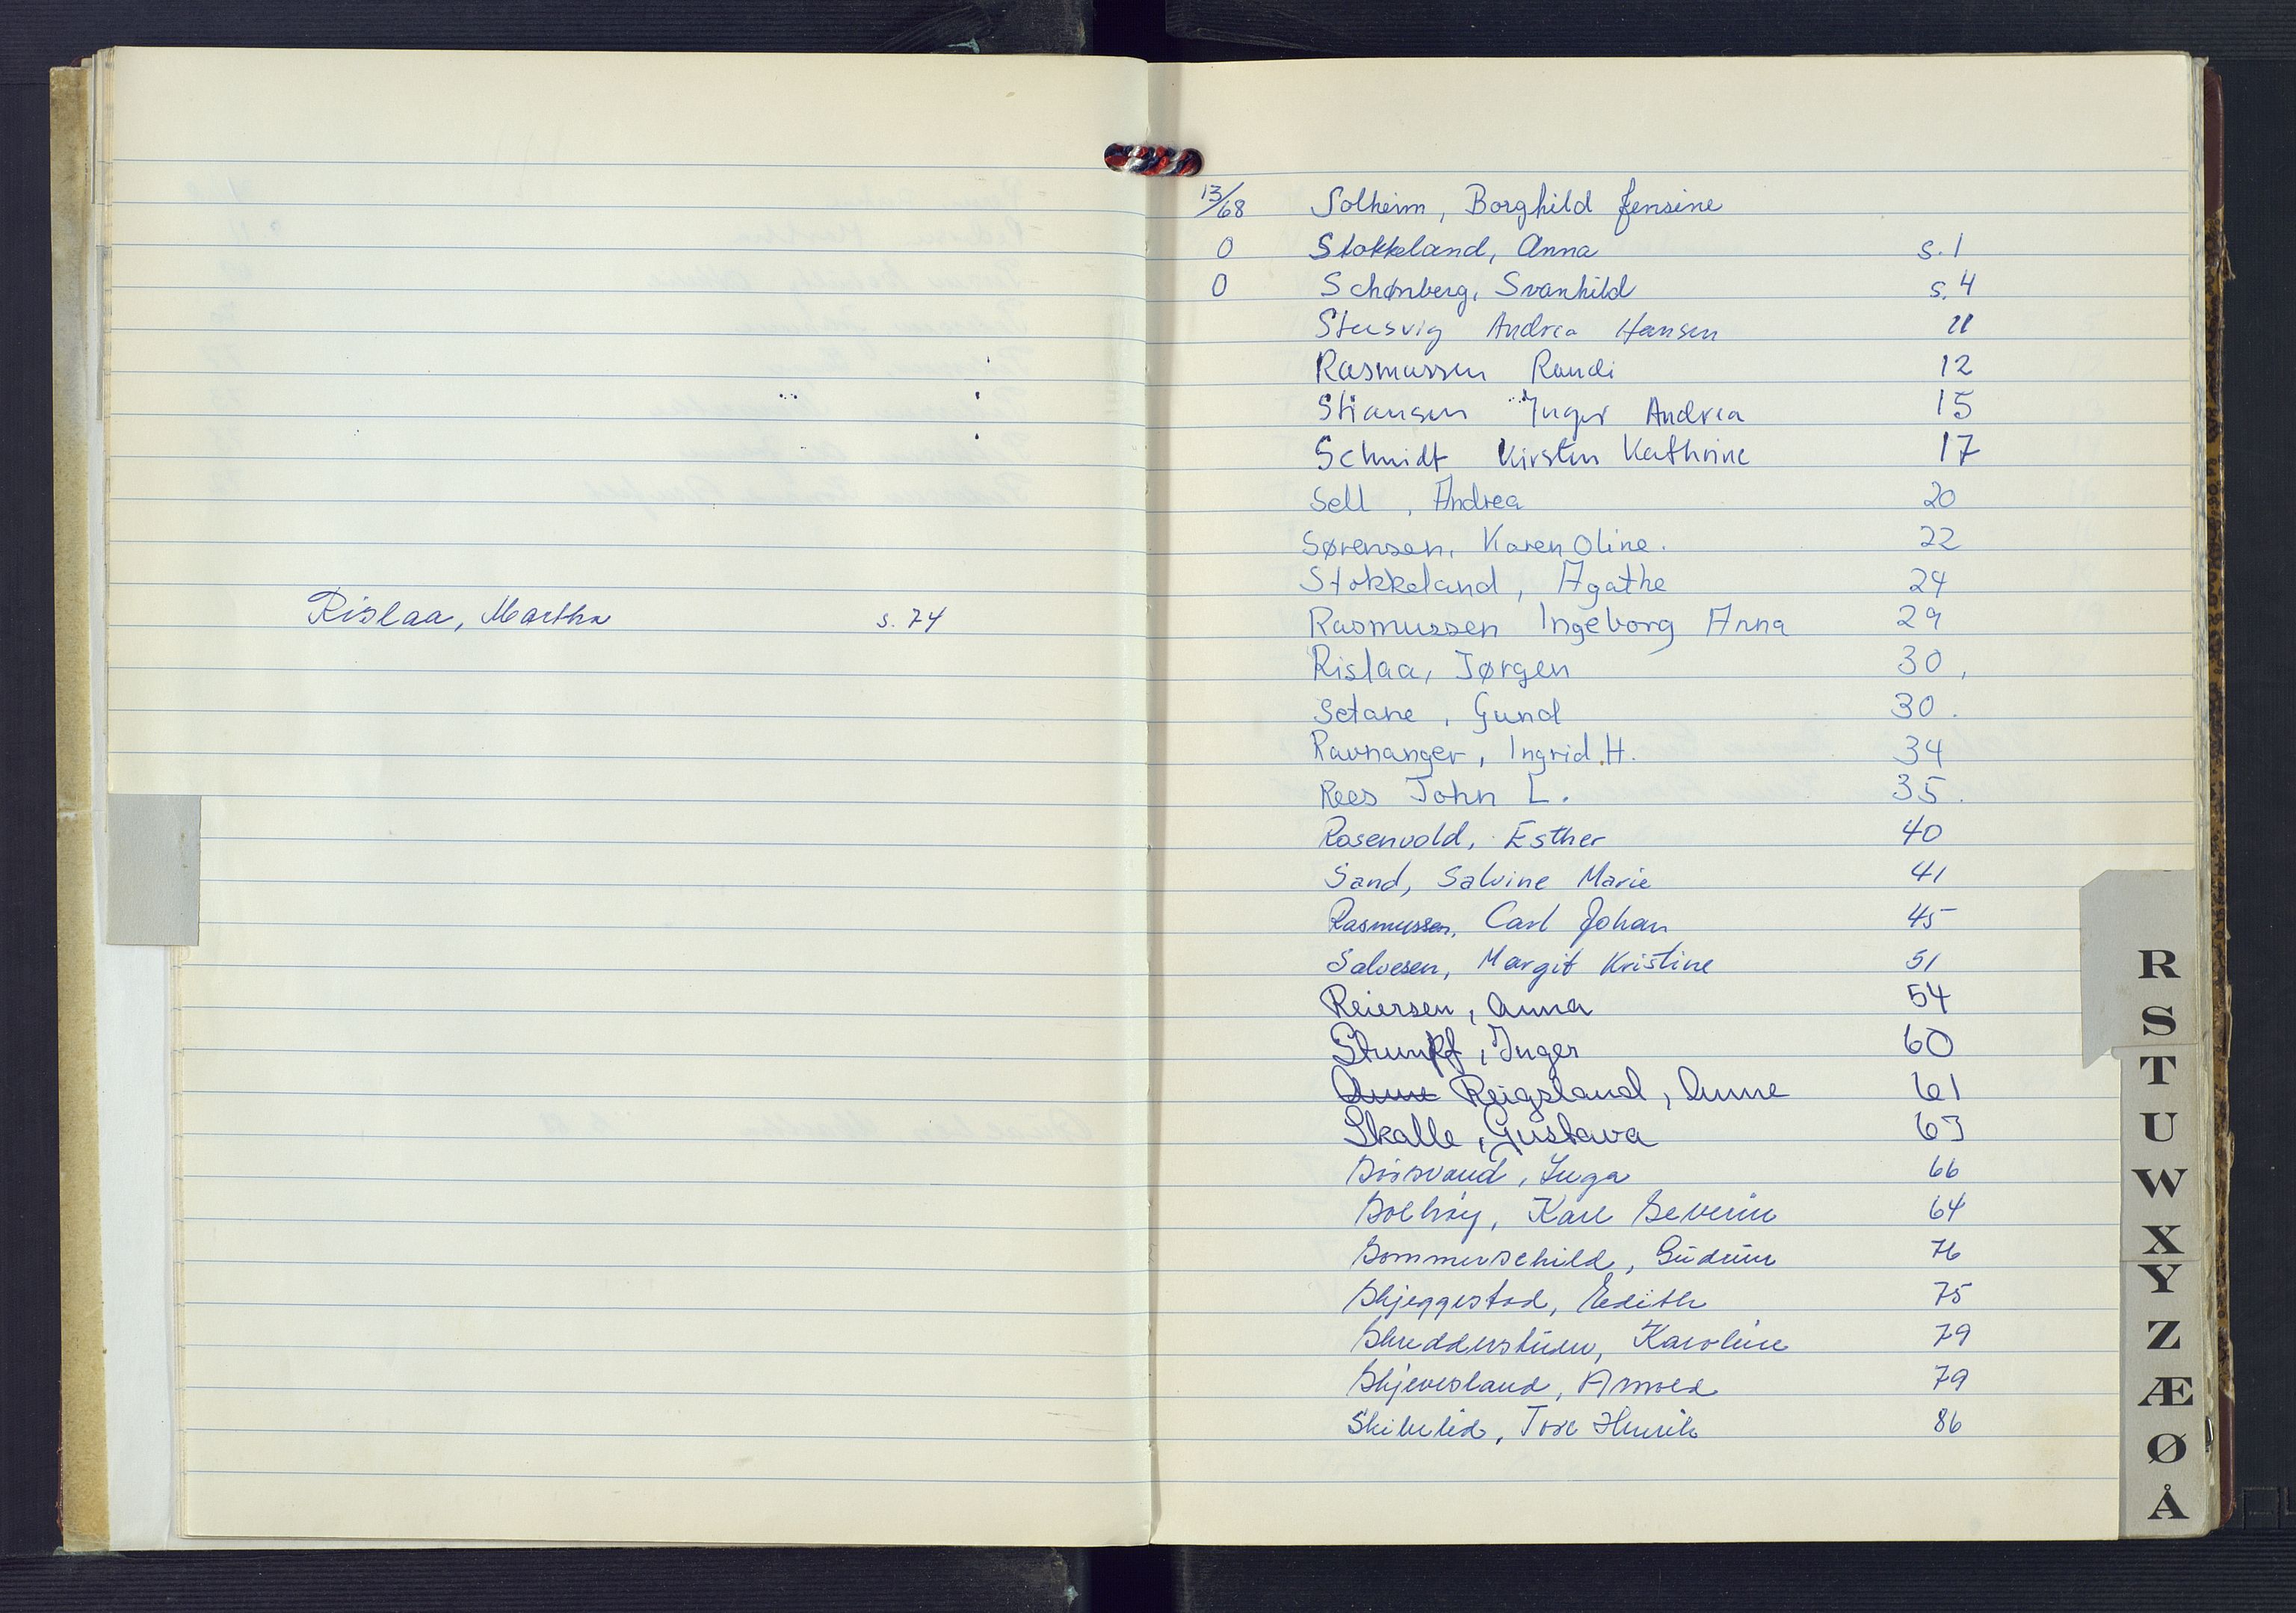 Rislaa, Martha s. 74
13/68 Solheim, Borghild Jensine
0 Stokkeland, Anna s. 1
0 Schønberg, Svanhild s. 4
Stusvig Andrea Hansen 11
Rasmussen Randi 12
Stiansen Inger Andrea 15
Schmidt Kirsten Kathrine 17
Sell, Andrea 20
Sørensen, Karen Oline. 22
Stokkeland, Agathe 24
Rasmussen Ingeborg Anna 29
Rislaa, Jørgen 30,
Setane, Gund 30.
Ravnanger, Ingrid H. 34
Rees John L. 35.
Rosenvold, Esther 40
Sand, Salvine Marie 41
Rasmussen, Carl Johan 45
Salvesen, Margit Kristine 51
Reiersen, Anna 54
Stumpf, Inger 60
Anne Reigsland, Anne 61
Skalle, Gustava 63
Inga 66
Solhøy, Karl Severin 64
Sommerschild, Gudrun 76
Skjeggestad, Edith 75
Skreddersтuen, Karoline 79
Skjevesland, Arnold 79
Skibelid, Tore Henrik 86
R
S
T
U
W
X
Y
Z
Æ
Ø
Å